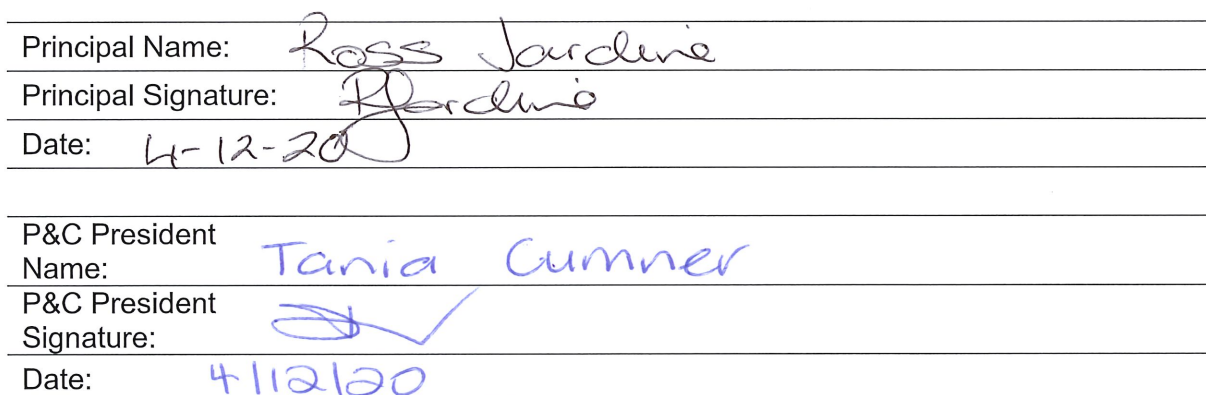 Principal Name: Ross Jardine
Principal Signature: RJardine
Date: 4-12-20
P&C President
Name: Tania Cumner
P&C President
Signature:
Date: 4/12/20